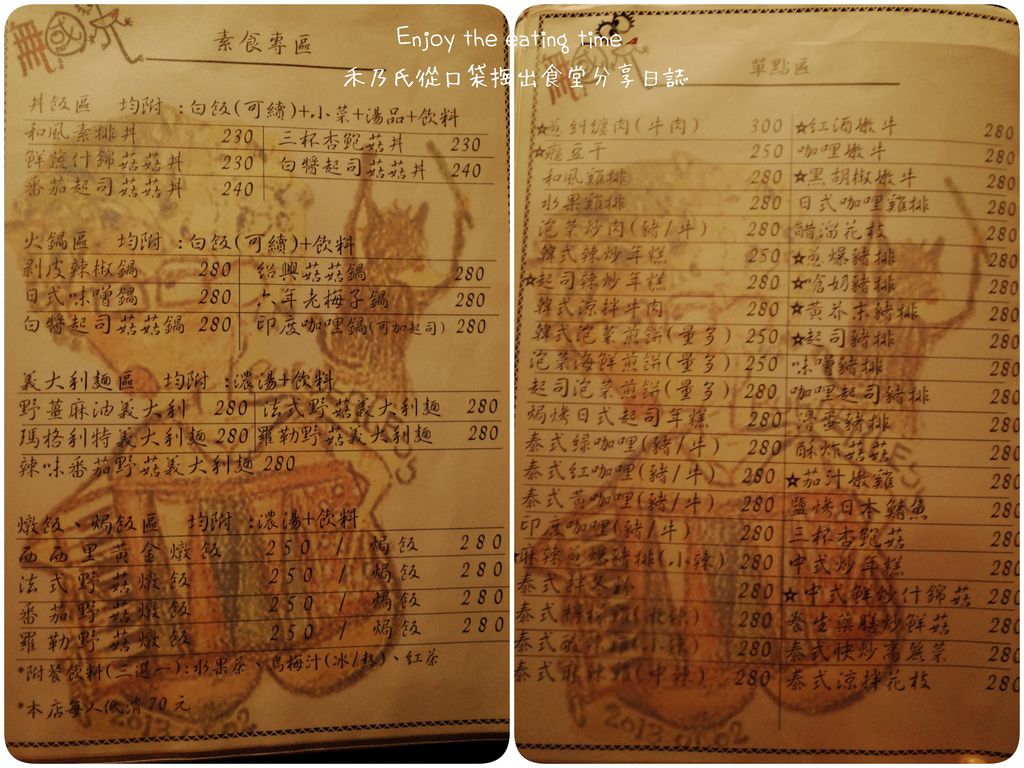 Enjoy the eating time
禾乃氏從口袋掏出食堂分享日誌
素食專區
丼飯區 均附 :白飯(可續)+小菜+湯品+飲料
和風素排丼 230 三杯杏鮑菇丼 230
鮮蔬什錦菇菇丼 230 白醬起司菇菇丼 240
番茄起司菇菇丼 240
火鍋區 均附 :白飯(可續)+飲料
剝皮辣椒鍋 280 紹興菇菇鍋 280
日式味噌鍋 280 六年老梅子鍋 280
白醬起司菇菇鍋 280 印度咖哩鍋(可加起司) 280
義大利麵區 均附 :濃湯+飲料
野薑麻油義大利 280 法式野菇義大利麵 280
瑪格利特義大利麵 280 羅勒野菇義大利麵 280
辣味番茄野菇義大利麵 280
燉飯、焗飯區 均附 :濃湯+飲料
西西里黃金燉飯 250 / 焗飯 280
法式野菇燉飯 250 / 焗飯 280
番茄野菇燉飯 250 / 焗飯 280
羅勒野菇燉飯 250 / 焗飯 280
*附餐飲料(三選一):水果茶、烏梅汁(冰/熱)、紅茶
*本店每人低消70元
2013.01.02
單點區
糾纏肉(牛肉) 300 ☆紅酒嫩牛 280
豆干 250 咖哩嫩牛 280
和風雞排 280 ☆黑胡椒嫩牛 280
水果雞排 280 日式咖哩雞排 280
泡菜炒肉(豬/牛) 280 醋溜花枝 280
韓式辣炒年糕 250 ☆蔥爆豬排 280
☆起司辣炒年糕 280 ☆嗆奶豬排 280
韓式涼拌牛肉 280 ☆黃芥末豬排 280
韓式泡菜煎餅(量多) 250 ☆起司豬排 280
泡菜海鮮煎餅(量多) 250 味噌豬排 280
起司泡菜煎餅(量多) 280 咖哩起司豬排 280
焗烤日式起司年糕 280 滑蛋豬排 280
泰式綠咖哩(豬/牛) 280 酥炸菇菇 280
泰式紅咖哩(豬/牛) 280 ☆茄汁嫩雞 280
泰式黃咖哩(豬/牛) 280 鹽烤日本鯖魚 280
印度咖哩(豬/牛) 280 三杯杏鮑菇 280
麻辣蔥爆豬排(小辣) 280 中式炒年糕 280
泰式拌冬粉 280 ☆中式鮮炒什錦菇 280
泰式 280 養生藥膳炒鮮菇 280
泰式酸辣 (小辣) 280 泰式快炒高麗菜 280
泰式麻辣 (中辣) 280 泰式涼拌花枝 280
2013.01.02